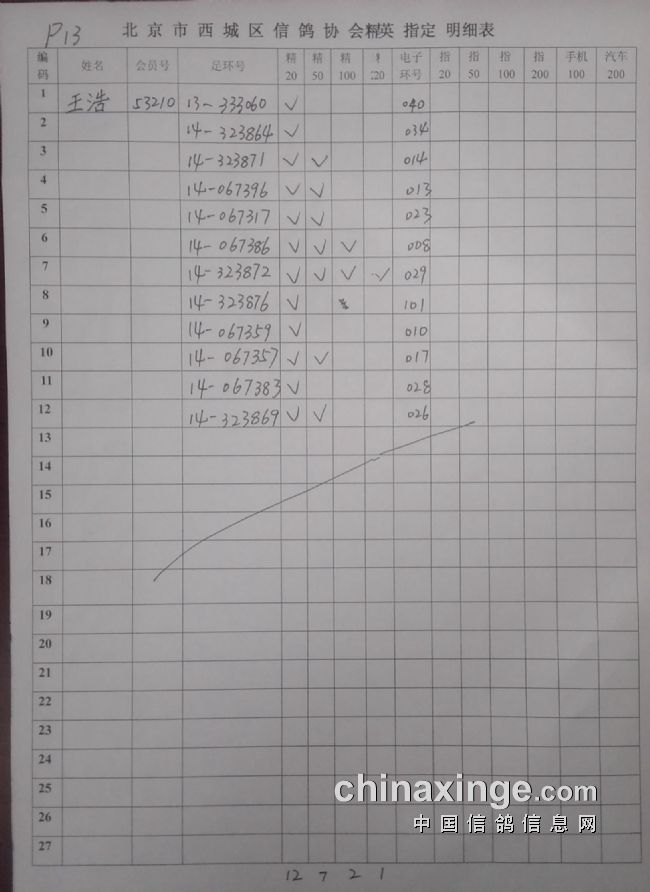 P13
北京市西城区信鸽协会精英指定明细表
编码 姓名 会员号 足环号 精20 精50 精100 电子环号 指20 指50 指100 指200 手机100 汽车200
1 王浩 53210 13-333060 ✓ 040
2 14-323864 ✓ 034
3 14-323871 ✓ ✓ 014
4 14-067396 ✓ ✓ 013
5 14-067317 ✓ ✓ 023
6 14-067386 ✓ ✓ ✓ 008
7 14-323872 ✓ ✓ ✓ ✓ 029
8 14-323876 ✓ 101
9 14-067359 ✓ 010
10 14-067357 ✓ ✓ 017
11 14-067383 ✓ 028
12 14-323869 ✓ ✓ 026
13
14
15
16
17
18
19
20
21
22
23
24
25
26
27
chinaxinge.com
中国信鸽信息网
12 7 2 1